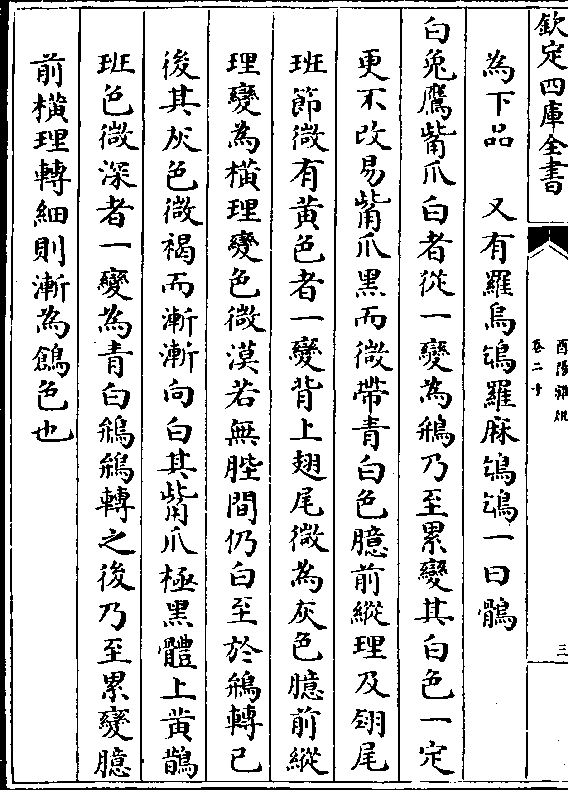 欽定四庫全書
酉陽雜俎
卷二十
三
為下品　又有羅烏鴭羅麻鴭鴭一曰鶻
白兔鷹觜爪白者從一變為鴘乃至累變其白色一定
更不改易觜爪黑而微帶青白色臆前縱理及翎尾
班節微有黄色者一變背上翅尾微為灰色臆前縱
理變為橫理變色微漠若無䏶間仍白至於鴘轉已
後其灰色微褐而漸漸向白其觜爪極黑體上黄鵲
班色微深者一變為青白鴘鴘轉之後乃至累變臆
前橫理轉細則漸為鴿色也